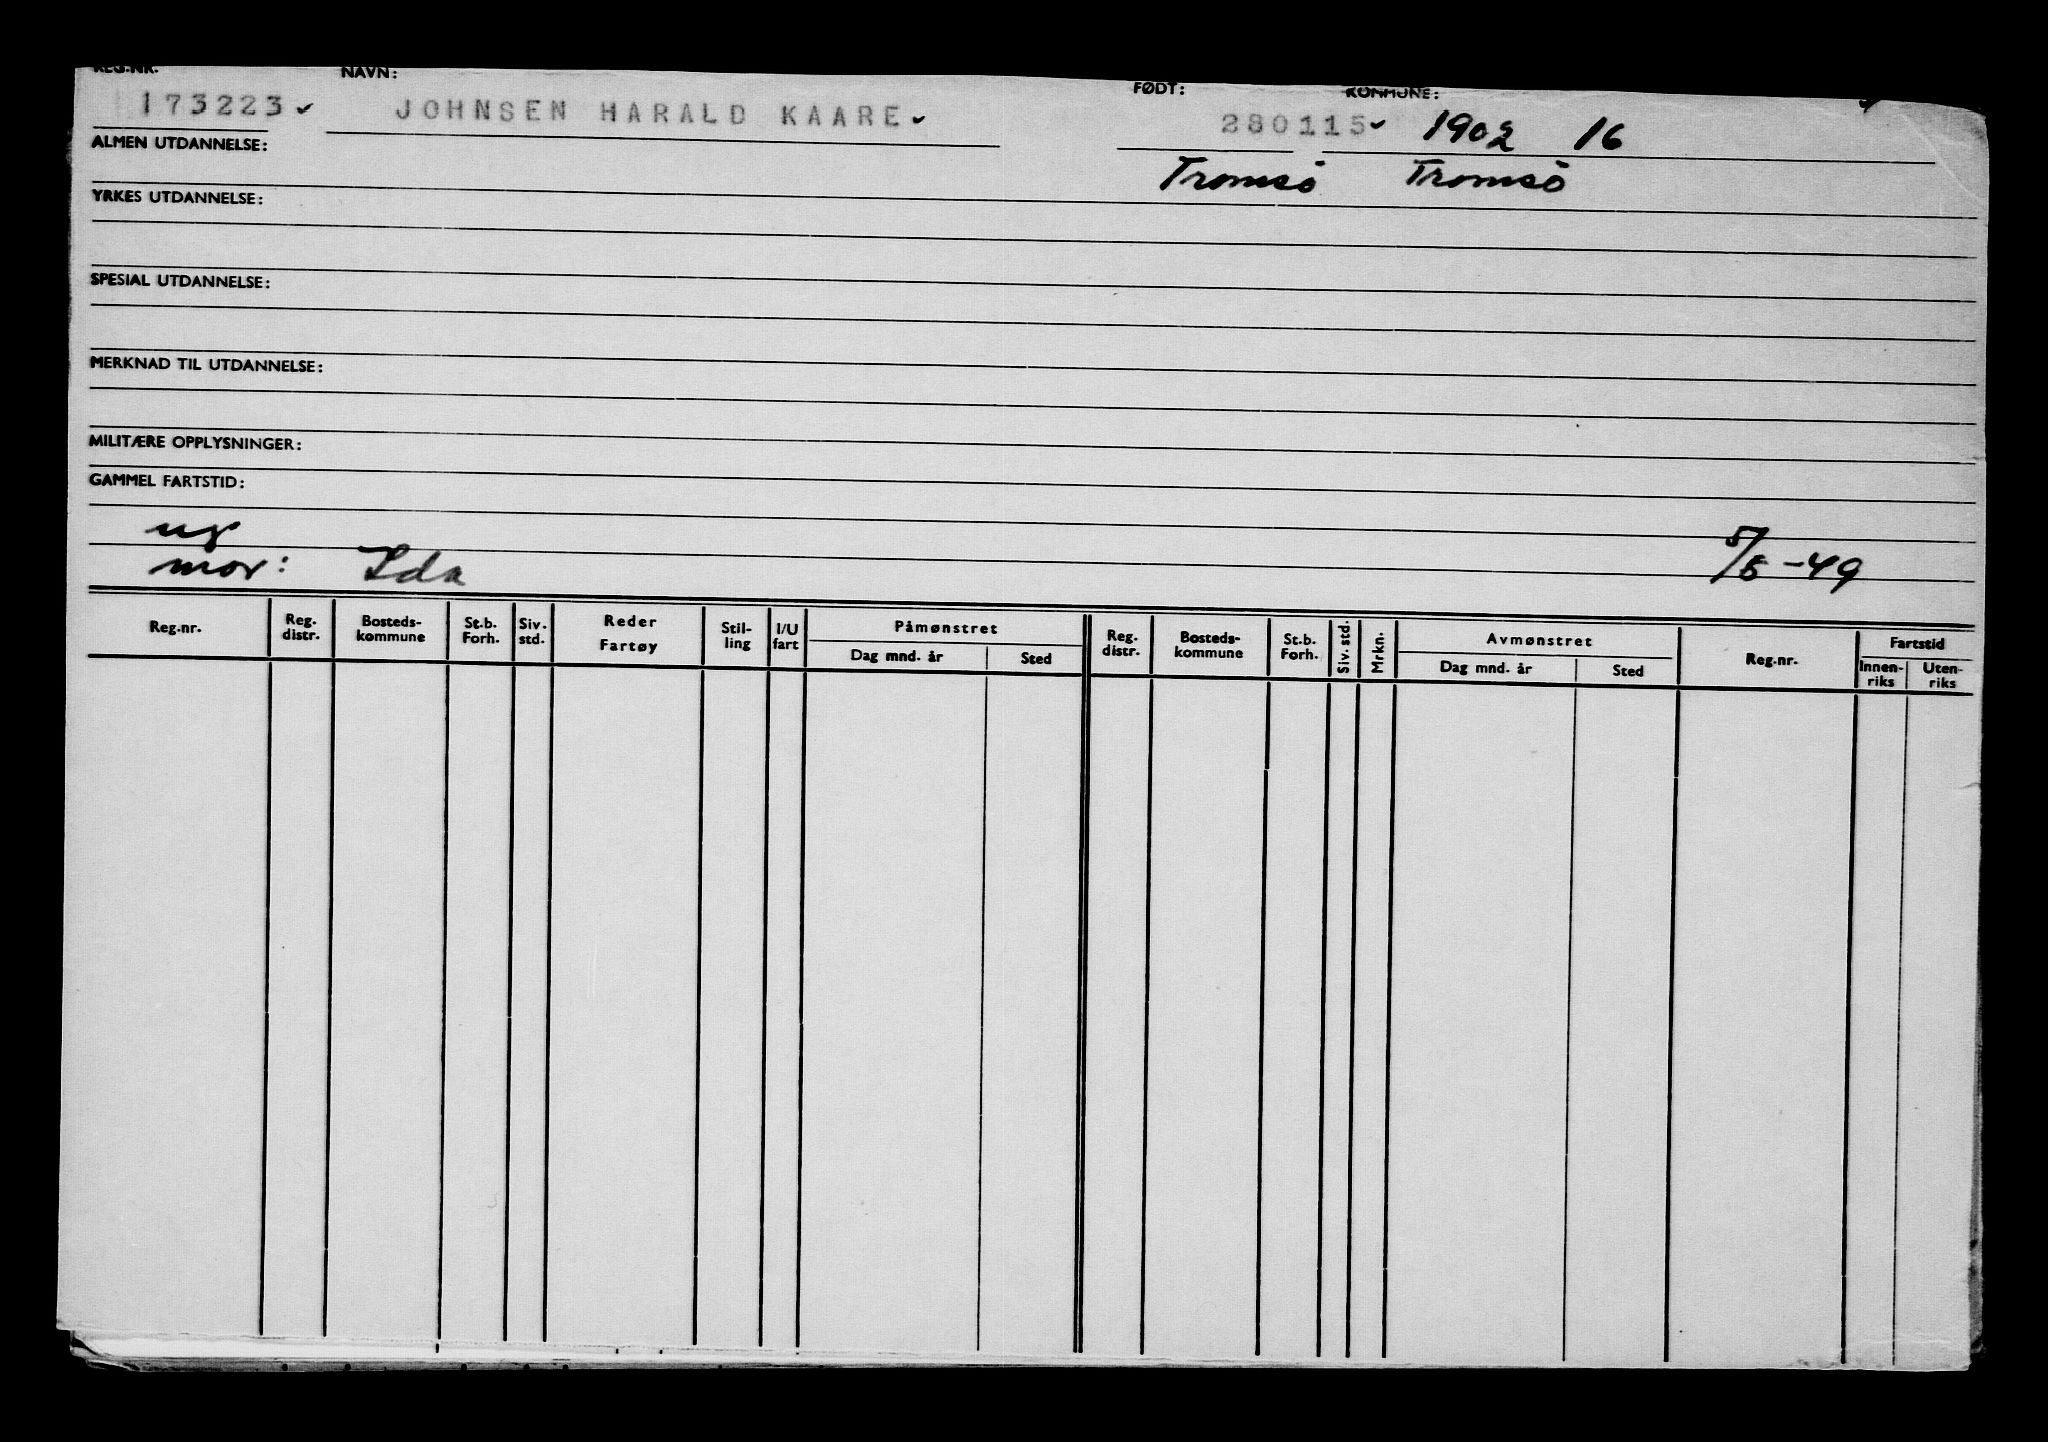 REG.NR. NAVN: FØDT: KOMMUNE:
173223 JOHNSEN HARALD KAARE 280115 1902 16
ALMEN UTDANNELSE: Tromsö Tromsö
YRKES UTDANNELSE:
SPESIAL UTDANNELSE:
MERKNAD TIL UTDANNELSE:
MILITÆRE OPPLYSNINGER:
GAMMEL FARTSTID:
ug
mor: Ida 5/5-49
Reg.nr. Reg. distr. Bosteds-kommune St.b. Forh. Siv. std. Reder Fartøy Stil-ling I/U fart Påmønstret Dag mnd. år Sted Reg. distr. Bosteds-kommune St.b. Forh. Siv. std. Mrkn. Avmønstret Dag mnd. år Sted Reg.nr. Fartstid Innen-riks Uten-riks